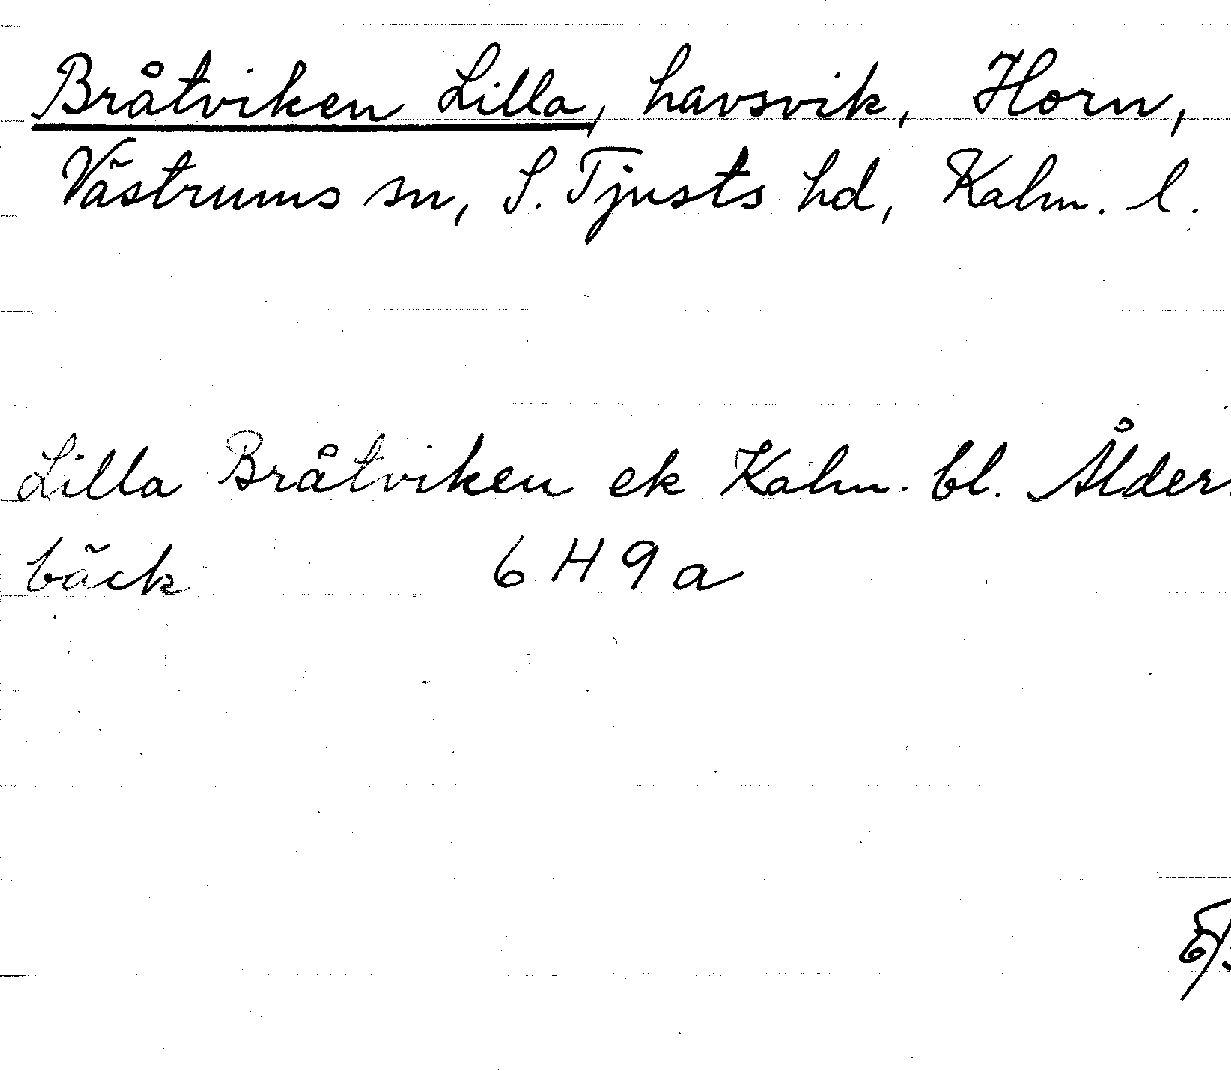 Bråtviken Lilla, havsvik, Horn,
Västrums sn, S. Tjusts hd, Kalm. l.
Lilla Bråtviken ek Kalm. bl. Ålder
bäck 6 H 9 a